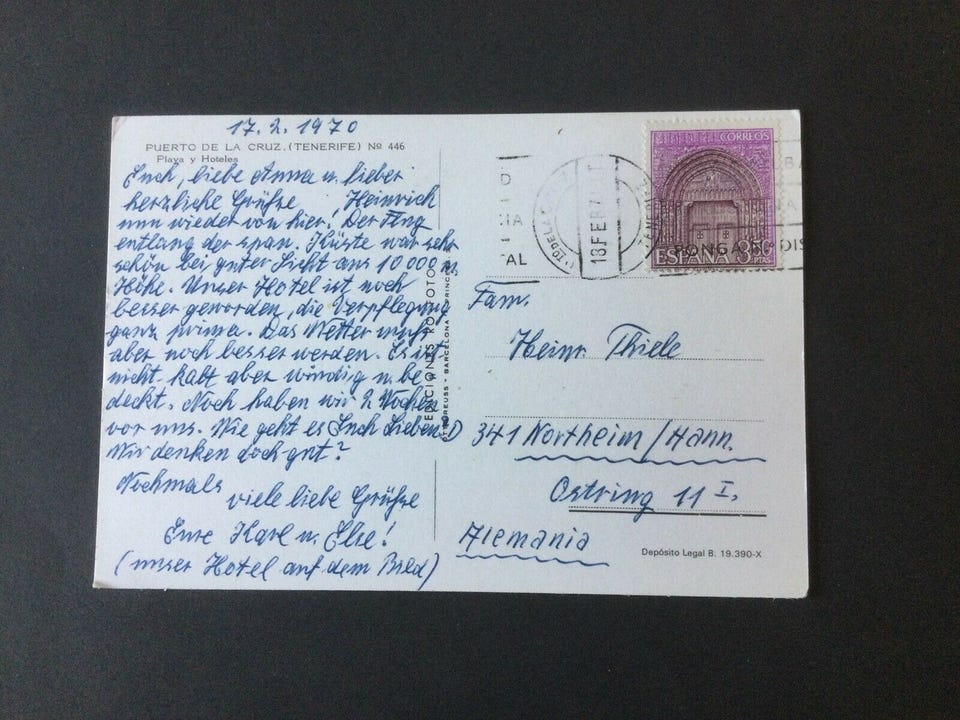 17.2.1970
PUERTO DE LA CRUZ, (TENERIFE) Nº 446
Playa y Hoteles
Euch, liebe Anna u. lieber
herzliche Grüße Heinrich
nun wieder von hier! Der Flug
entlang der span. Küste war sehr
schön bei guter Sicht aus 10 000 m
Höhe. Unser Hotel ist noch
besser geworden, die Verpflegung
ganz prima. Das Wetter muß
aber noch besser werden. Es ist
nicht kalt aber windig u. be
deckt. Noch haben wir 2 Wochen
vor uns. Wie geht es Euch Lieben
Wir denken doch gut?
Nochmals
viele liebe Grüße
Eure Karl u. Else!
(unser Hotel auf dem Bild)
EDICIONES RO FOTO
BARCELONA
CORREOS
ESPAÑA 3,50
PTAS
18 FEB 7
TENERIFE
AL
PONGA
DIS
Fam.
Heinr. Thiele
D 341 Northeim/Hann.
Ostring 11 I.
Alemania
Depósito Legal B. 19.390-X